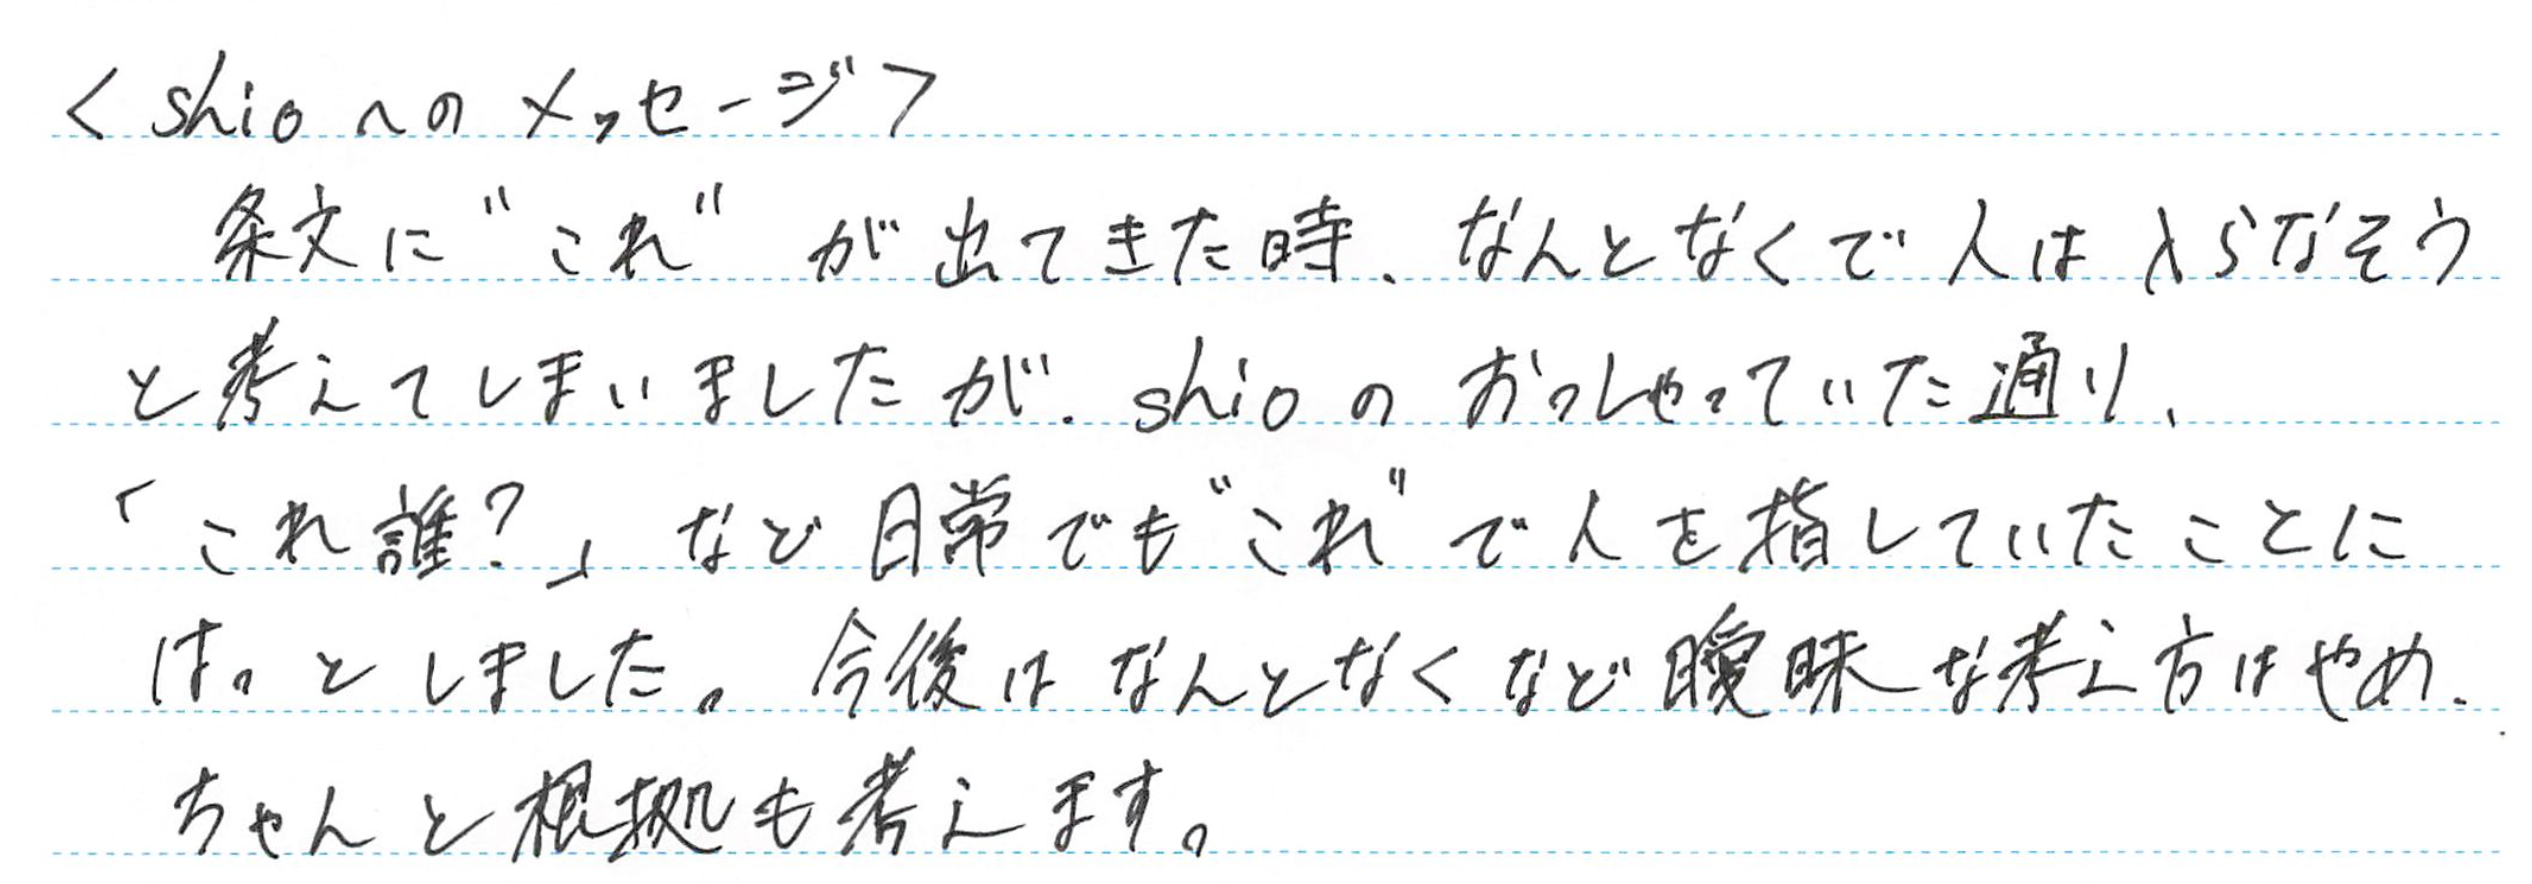 <shioへのメッセージ>
条文に"これ"が出てきた時、なんとなくで人は入らなそう
と考えてしまいましたが、shioのおっしゃっていた通り、
「これ誰?」など日常でも"これ"で人を指していたことに
はっとしました。今後はなんとなくなど曖昧な考え方はやめ、
ちゃんと根拠も考えます。